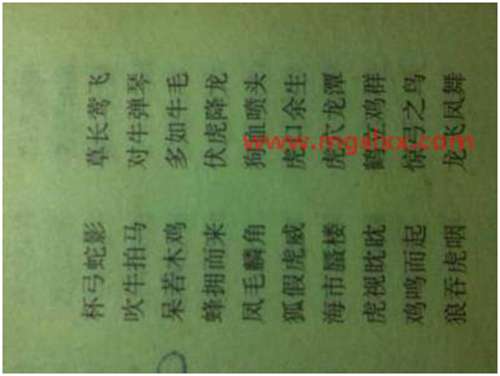 杯弓蛇影 草长莺飞
吹牛拍马 对牛弹琴
呆若木鸡 多如牛毛
蜂拥而来 伏虎降龙
凤毛麟角 狗血喷头
狐假虎威 虎口余生
海市蜃楼 虎穴龙潭
虎视眈眈 鹤立鸡群
鸡鸣而起 惊弓之鸟
狼吞虎咽 龙飞凤舞